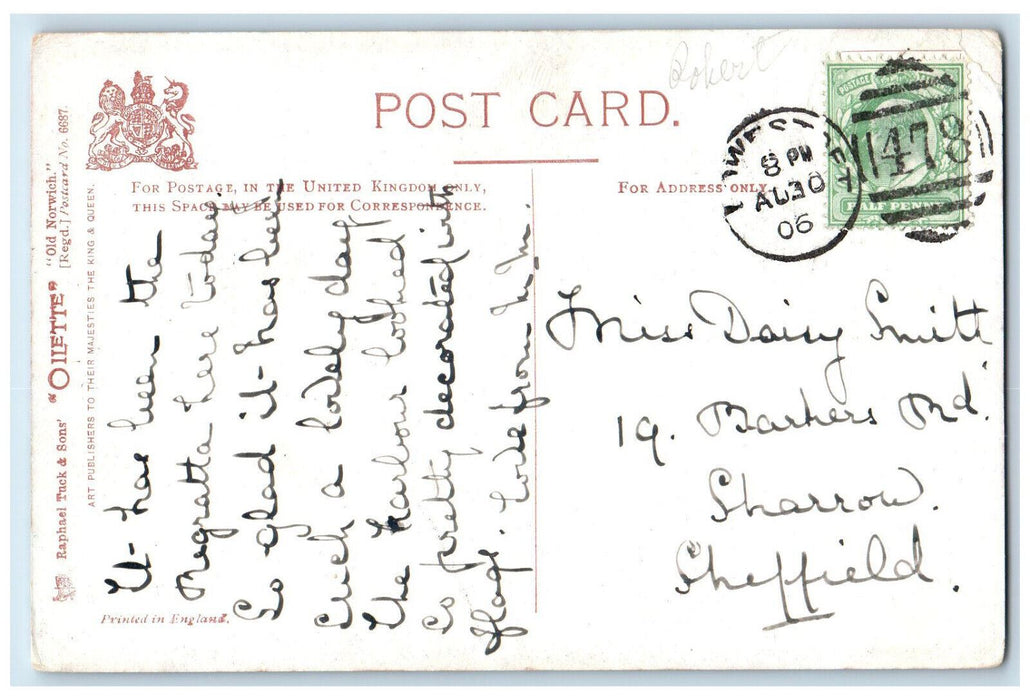 Robert
POST CARD.
FOR POSTAGE, IN THE UNITED KINGDOM ONLY,
THIS SPACE MAY BE USED FOR CORRESPONDENCE.
FOR ADDRESS ONLY.
LOWESTOFT
8 PM
AU 30
06
478
POSTAGE
HALF PENNY
Raphael Tuck & Sons' "OILETTE" "Old Norwich."
[Regd.] Postcard No. 6687.
ART PUBLISHERS TO THEIR MAJESTIES THE KING & QUEEN.
It has been the
Regratta here today.
So glad it has been
Such a lovely day
The harbour looked
So pretty decorated with
flags. Love from M.
Miss Daisy Smith
19. Barkers Rd.
Sharrow.
Sheffield.
Printed in England.